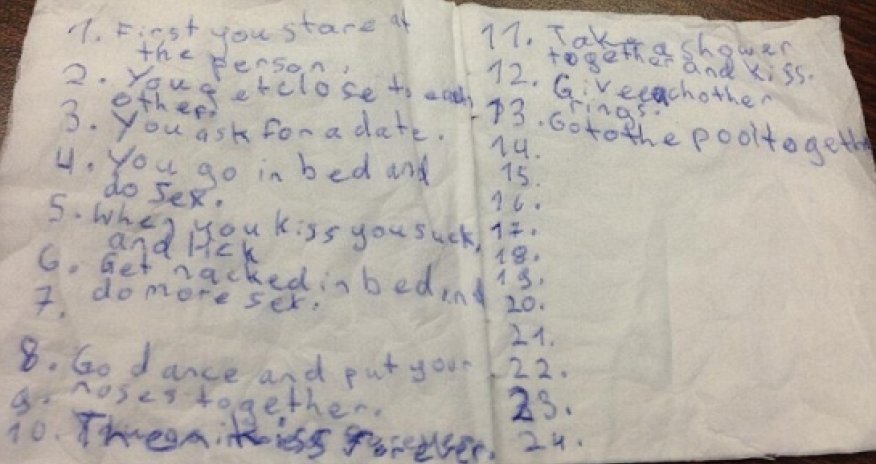 1. First you stare at
the person.
2. You get close to each
other.
3. You ask for a date.
4. You go in bed and
do sex.
5. When you kiss you suck,
and lick
6. Get nacked in bed and
7. do more sex.
8. Go dance and put your
9. noses together.
10. kiss forever.
11. Take a shower
together and kiss.
12. Give eachother
rings.
13. Go to the pool togeth
14.
15.
16.
17.
18.
19.
20.
21.
22.
23.
24.